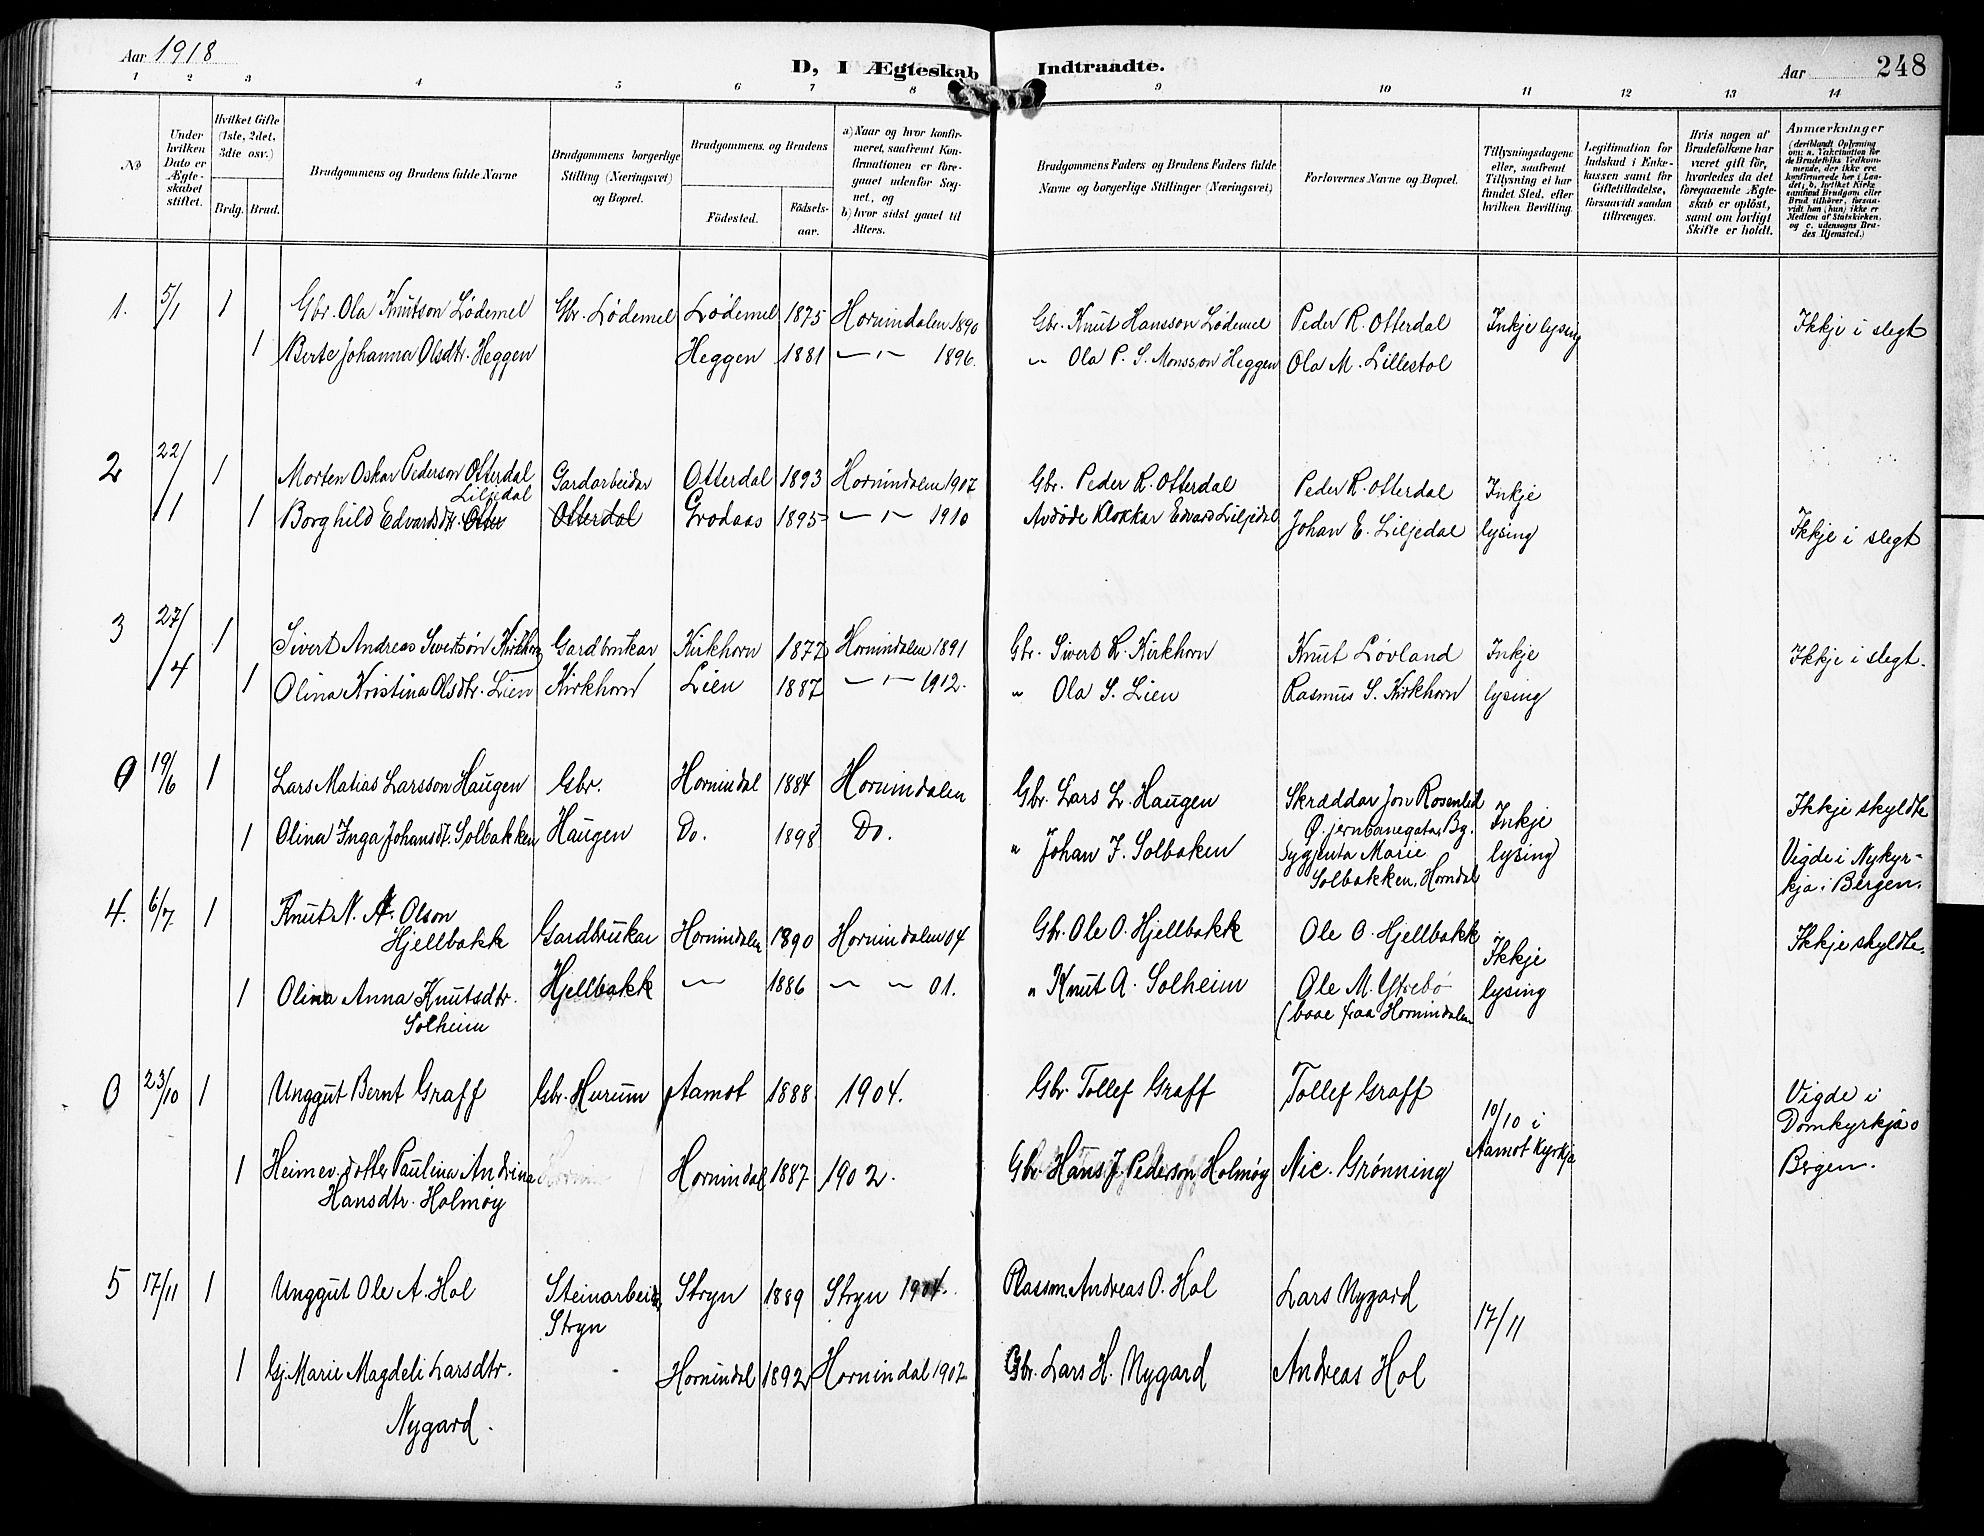 Aar 1918
D, I Ægteskab Indtraadte.
Aar
248
1 2 3 4 5 6 7 8 9 10 11 12 13 14
No
Under hvilken Dato er Ægteskabet stiftet.
Hvilket Gifte (1ste, 2det, 3die osv.)
Brdg. Brud.
Brudgommens og Brudens fulde Navne
Brudgommens borgerlige Stilling (Næringsvei) og Bopæl.
Brudgommens og Brudens
Födested.
Födselsaar.
a) Naar og hvor konfirmeret, saafremt Konfirmationen er foregaaet udenfor Sognet, og
b) hvor sidst gaaet til Alters.
Brudgommens Faders og Brudens Faders fulde Navne og borgerlige Stillinger (Næringsvei)
Forlovernes Navne og Bopæl.
Tillysningsdagene eller, saafremt Tillysning ei har fundet Sted, efter hvilken Bevilling.
Legitimation for Indskud i Enkekassen samt for Giftetilladelse, forsaavidt saadan tiltrænges.
Hvis nogen af Brudefolkene har været gift för, hvorledes da det foregaaende Ægteskab er oplöst, samt om lovligt Skifte er holdt.
Anmærkninger
(deriblandt Oplysning om: a. Vakcination for de Brudefolks Vedkommende, der ikke ere konfirmerede her i Landet; b. hvilket Kirkesamfund Brudgom eller Brud tilhörer, forsaavidt han (hun) ikke er Medlem af Statskirken, og c. udensogns Brudes Hjemsted.)
1. 5/1 1 Gbr. Ola Knutson Lødemel Gbr. Lødemel Lødemel 1875 Hornindalen 1890 Gbr. Knut Hansson Lødemel Peder R. Otterdal Inkje lysing Ikkje i slegt
1 Berte Johanna Olsdtr. Heggen Heggen 1881 — " — 1896. " Ola P. S. Monsson Heggen Ola M. Lillestol
2 22/1 1 Morten Oskar Pederson Otterdal Gardarbeidar Otterdal 1893 Hornindalen 1907. Gbr. Peder R. Otterdal Peder R. Otterdal Inkje
Liljedal
1 Borghild Edvardsdtr. Otter Otterdal Grodaas 1895 — " — 1910 Avdöde Klokkar Edvard Liljedal Johan E. Liljedal lysing Ikkje i slegt
3 27/4 1 Sivert Andreas Sivertsön Kirkhorn Gardbrukar Kirkhorn 1877 Hornindalen 1891 Gbr. Sivert R. Kirkhorn Knut Løvland Inkje Ikkje i slegt.
1 Olina Kristina Olsdtr. Lien Kirkhorn Lien 1887 — " — 1912. " Ola S. Lien Rasmus S. Kirkhorn lysing
0 19/6 1 Lars Matias Larsson Haugen Gbr. Hornindal 1884 Hornindalen Gbr. Lars L. Haugen Skræddar Jon Rosenlid Ikkje skyldte
Ø. jernbanegata, Bg. Inkje
1 Olina Inga Johansdt. Solbakken Haugen Do. 1898 Do. " Johan J. Solbaken Sygjenta Marie lysing Vigde i Nykyr-
Solbakken, Horndal kja i Bergen.
4. 6/7. 1 Knut N. A. Olson
Hjellbakk Gardbrukar Hornindalen 1890 Hornindalen 04 Gbr. Ole O. Hjellbakk Ole O. Hjellbakk Ikkje Ikkje skyldte.
1 Olina Anna Knutsdtr. Hjellbakk — " — 1886 — " — 01. " Knut A. Solheim Ole M. Ytrebö lysing
Solheim (baae fraa Hornindalen
0 23/10 1 Unggut Bernt Graff Gbr. Hurum Aamot 1888 1904. Gbr. Tollef Graff Tollef Graff 10/10 i Vigde i
Aamot kyrkje Domkyrkja
1 Heimev. dotter Paulina Andrina Hornindal 1887 1902. Gbr. Hans J. Pederson Holmøy Nic. Grønning Bergen.
Hansdtr. Holmøy
5 17/11 1 Unggut Ole A. Hol Steinarbeid. Stryn 1889 Stryn 1904. Plassm. Andreas O. Hol Lars Nygard 17/11
Stryn
1 Gj. Marie Magdeli Larsdtr. Hornindal 1892 Hornindal 1907 Gbr. Lars H. Nygard Andreas Hol
Nygard.